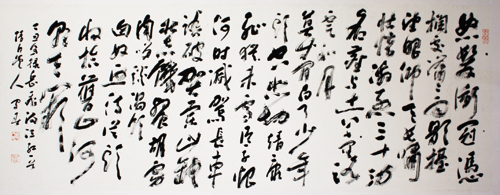 怒髮衝冠憑
欄處瀟瀟雨歇抬
望眼仰天長嘯
壯懷激烈三十功
名塵土八千里路
雲和月
莫等閒白了少年
頭空悲切靖康
恥猶未雪臣子恨
何時滅駕長車
踏破賀蘭山缺
壯志飢餐胡虜
肉笑談渴飲
匈奴血待從頭
收拾舊山河
朝天闕
岳飛滿江紅